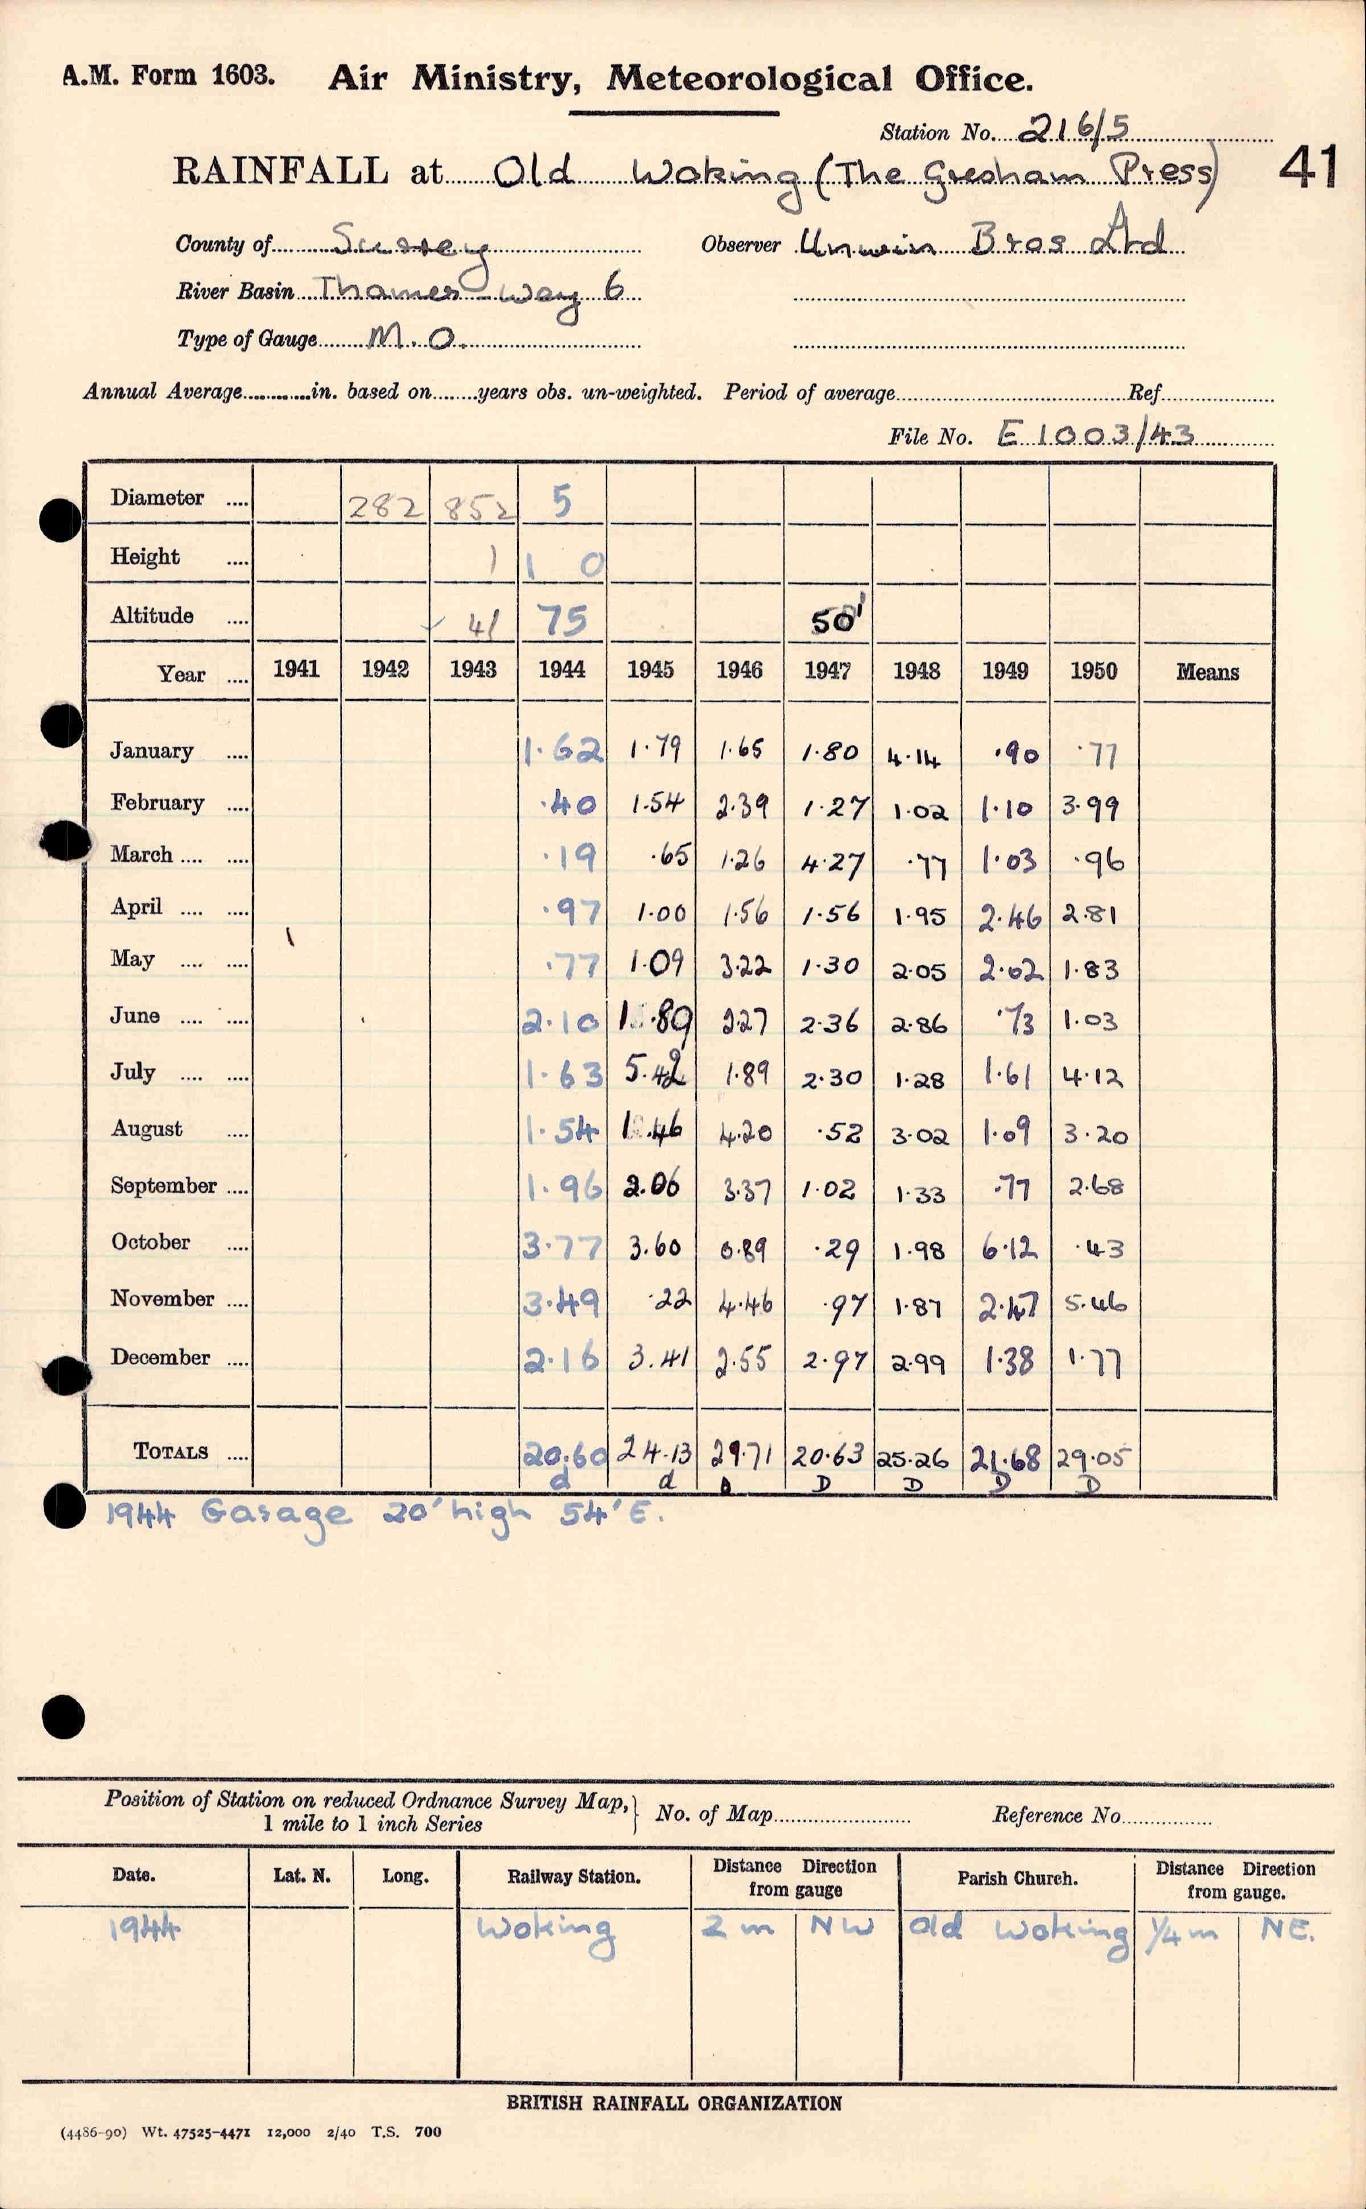 A.M. Form 1603. Air Ministry, Meteorological Office.
Station No. 216/5
RAINFALL at Old Woking (The Gresham Press) 41
County of Surrey Observer Unwin Bros Ltd
River Basin Thames - Wey 6
Type of Gauge M.O.
Annual Average in. based on years obs. un-weighted. Period of average Ref
File No. E 1003/43
Diameter .... 282 852 5
Height .... 1 1 0
Altitude .... 41 75 50'
Year .... 1941 1942 1943 1944 1945 1946 1947 1948 1949 1950 Means
January .... 1.62 1.79 1.65 1.80 4.14 .90 .77
February .... .40 1.54 2.39 1.27 1.02 1.10 3.99
March .... .... .19 .65 1.26 4.27 .77 1.03 .96
April .... .... .97 1.00 1.56 1.56 1.95 2.46 2.81
May .... .... .77 1.09 3.22 1.30 2.05 2.02 1.83
June .... .... 2.10 1.89 2.27 2.36 2.86 .73 1.03
July .... .... 1.63 5.42 1.89 2.30 1.28 1.61 4.12
August .... 1.54 1.46 4.20 .52 3.02 1.09 3.20
September .... 1.96 2.06 3.37 1.02 1.33 .77 2.68
October .... 3.77 3.60 0.89 .29 1.98 6.12 .43
November .... 3.49 .22 4.46 .97 1.87 2.47 5.46
December .... 2.16 3.41 2.55 2.97 2.99 1.38 1.77
TOTALS .... 20.60 24.13 29.71 20.63 25.26 21.68 29.05
d d D D D D D
1944 Garage 20' high 54' E.
Position of Station on reduced Ordnance Survey Map, } No. of Map Reference No.
1 mile to 1 inch Series
Date. Lat. N. Long. Railway Station. Distance Direction from gauge Parish Church. Distance Direction from gauge.
1944 Woking 2 m NW Old Woking 1/4 m NE.
BRITISH RAINFALL ORGANIZATION
(4486-90) Wt. 47525-4471 12,000 2/40 T.S. 700